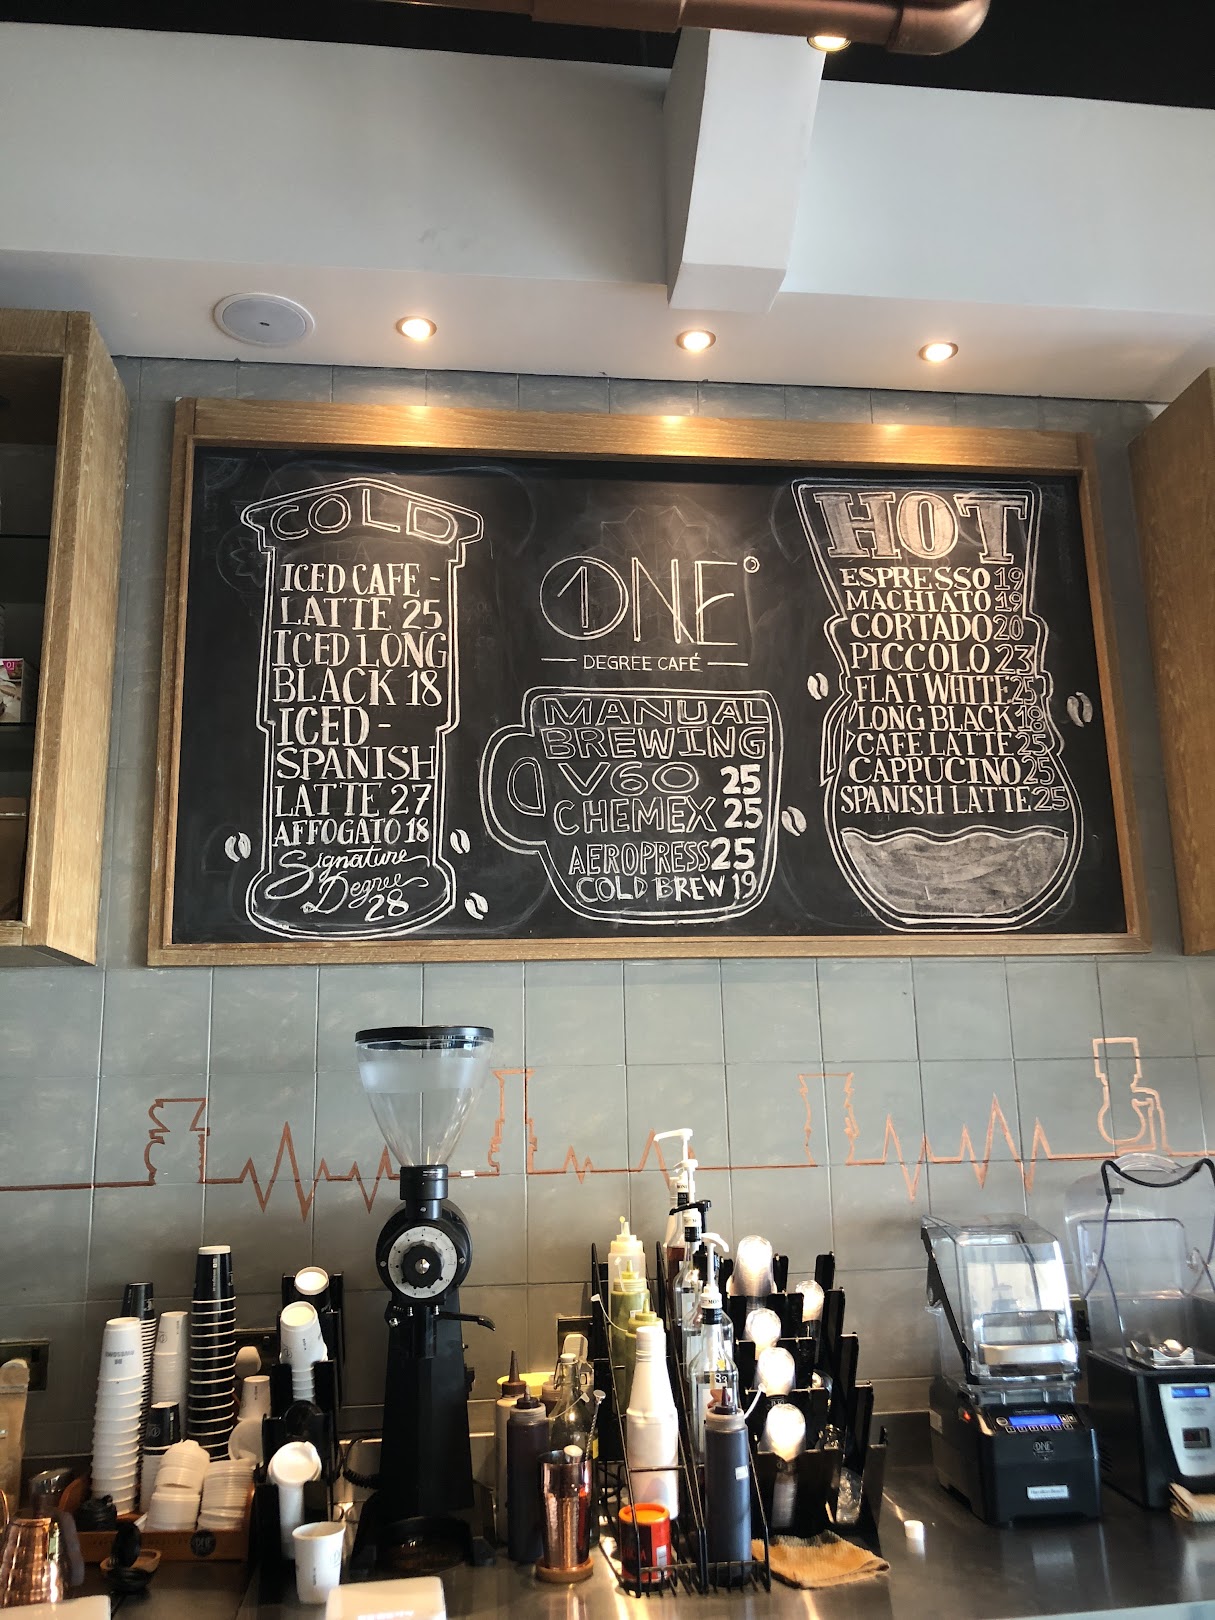 COLD
ICED CAFE -
LATTE 25
ICED LONG
BLACK 18
ICED -
SPANISH
LATTE 27
AFFOGATO 18
Signature
Degree
28
ONE°
DEGREE CAFÉ
MANUAL
BREWING
V60 25
CHEMEX 25
AEROPRESS 25
COLD BREW 19
HOT
ESPRESSO 19
MACHIATO 19
CORTADO 20
PICCOLO 23
FLAT WHITE 25
LONG BLACK 18
CAFE LATTE 25
CAPPUCINO 25
SPANISH LATTE 25